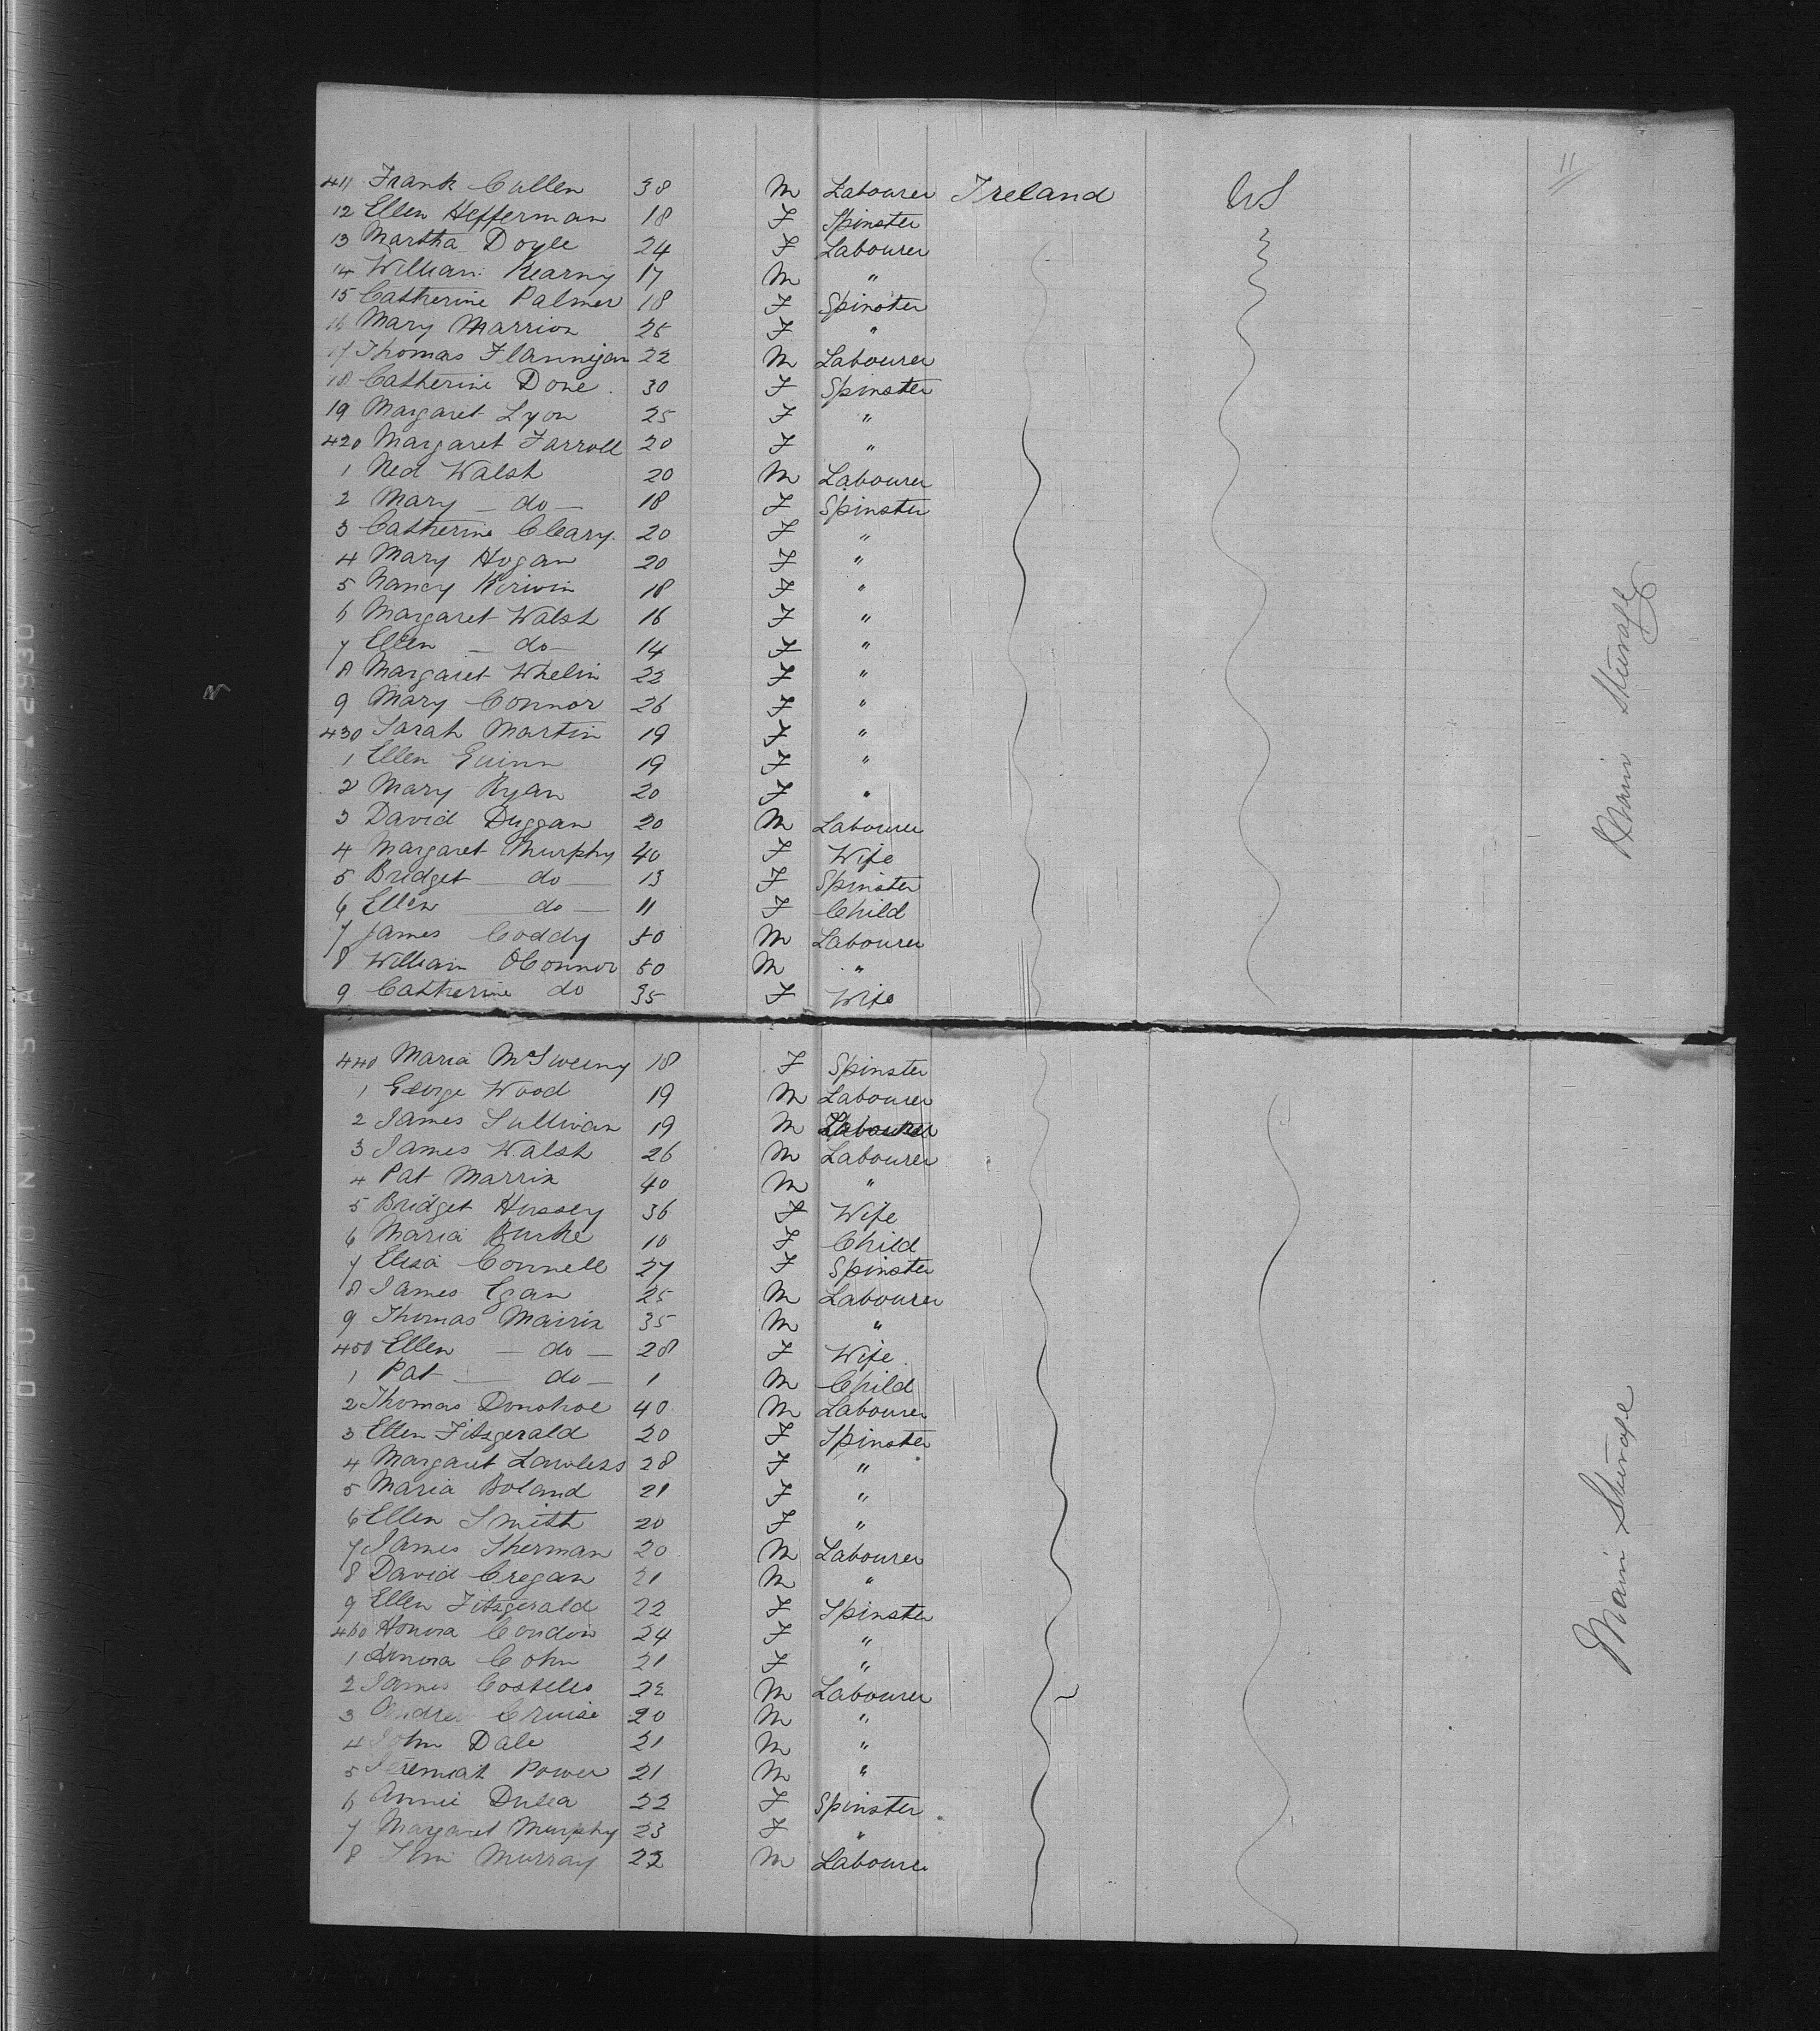 11
411 Frank Cullen 38 M Labourer Ireland US
12 Ellen Hefferman 18 F Spinster
13 Martha Doyle 24 F Labourer
14 William Kearny 17 M "
15 Catherine Palmer 18 F Spinster
16 Mary Marrion 25 F "
17 Thomas Flannigan 22 M Labourer
18 Catherine Done 30 F Spinster
19 Margaret Lyon 25 F "
420 Margaret Farroll 20 F "
1 Ned Walsh 20 M Labourer
2 Mary - do - 18 F Spinster
3 Catherine Cleary 20 F "
4 Mary Hogan 20 F "
5 Nancy Kirwin 18 F "
6 Margaret Walsh 16 F "
7 Ellen - do - 14 F "
8 Margaret Whelin 22 F "
9 Mary Connor 26 F "
430 Sarah Martin 19 F "
1 Ellen Guinn 19 F "
2 Mary Ryan 20 F "
3 David Duggan 20 M Labourer
4 Margaret Murphy 40 F Wife
5 Bridget - do - 13 F Spinster
6 Ellen - do - 11 F Child
7 James Coddy 50 M Labourer
8 William OConnor 50 M "
9 Catherine do 35 F Wife
Main Steerage
440 Maria McSweeny 18 F Spinster
1 George Wood 19 M Labourer
2 James Sullivan 19 M Labourer
3 James Walsh 26 M Labourer
4 Pat Marrin 40 M "
5 Bridget Hussey 36 F Wife
6 Maria Burke 10 F Child
7 Eliza Connell 27 F Spinster
8 James Egan 25 M Labourer
9 Thomas Mairin 35 M "
450 Ellen - do - 28 F Wife
1 Pat - do - 1 M Child
2 Thomas Donohoe 40 M Labourer
3 Ellen Fitzgerald 20 F Spinster
4 Margaret Lawless 28 F "
5 Maria Boland 21 F "
6 Ellen Smith 20 F "
7 James Sherman 20 M Labourer
8 David Cregan 21 M "
9 Ellen Fitzgerald 22 F Spinster
460 Honora Condon 24 F "
1 Honora Cohn 21 F "
2 James Costello 22 M Labourer
3 Andrew Cruise 20 M "
4 John Dale 21 M "
5 Jeremiah Power 21 M "
6 Annie Dulea 22 F Spinster
7 Margaret Murphy 23 F "
8 Tim Murray 22 M Labourer
Main Steerage
DUPONT SAFETY